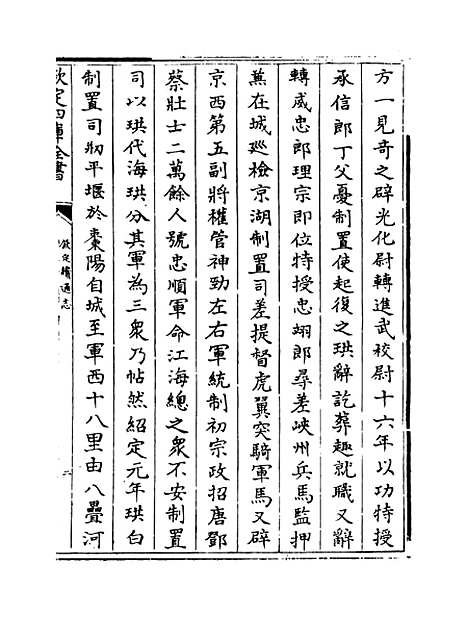 方一見奇之辟光化尉轉進武校尉十六年以功特授
承信郎丁父憂制置使起復之珙辭訖葬趣就職又辭
轉成忠郎理宗即位特授忠翊郎尋差峽州兵馬監押
兼在城廵檢京湖制置司差提督虎翼突騎軍馬又辟
京西第五副將權管神勁左右軍統制初宗政招唐鄧
蔡壯士二萬餘人號忠順軍命江海總之衆不安制置
司以珙代海珙分其軍為三衆乃帖然紹定元年珙白
制置司剏平堰於棗陽自城至軍西十八里由八疊河
欽定四庫全書
欽定續通志
二